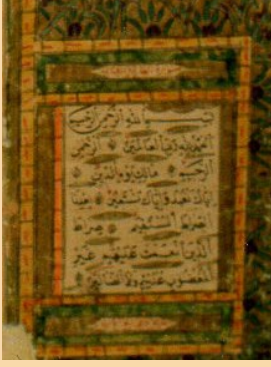 بسم الله الرحمن الرحيم
الحمد لله رب العالمين الرحمن
الرحيم مالك يوم الدين
اياك نعبد و اياك نستعين اهدنا
الصراط المستقيم صراط
الذين انعمت عليهم غير
المغضوب عليهم ولا الضالين